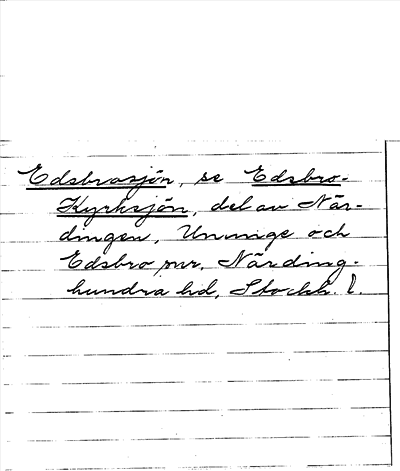 Edsbrosjön, se Edsbro-
Kyrksjön, del av När-
dingen, Ununge och
Edsbro snr, Närding-
hundra hd, Stockh. l.